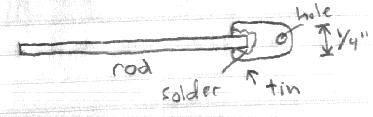 hole
1/4"
rod
solder
tin